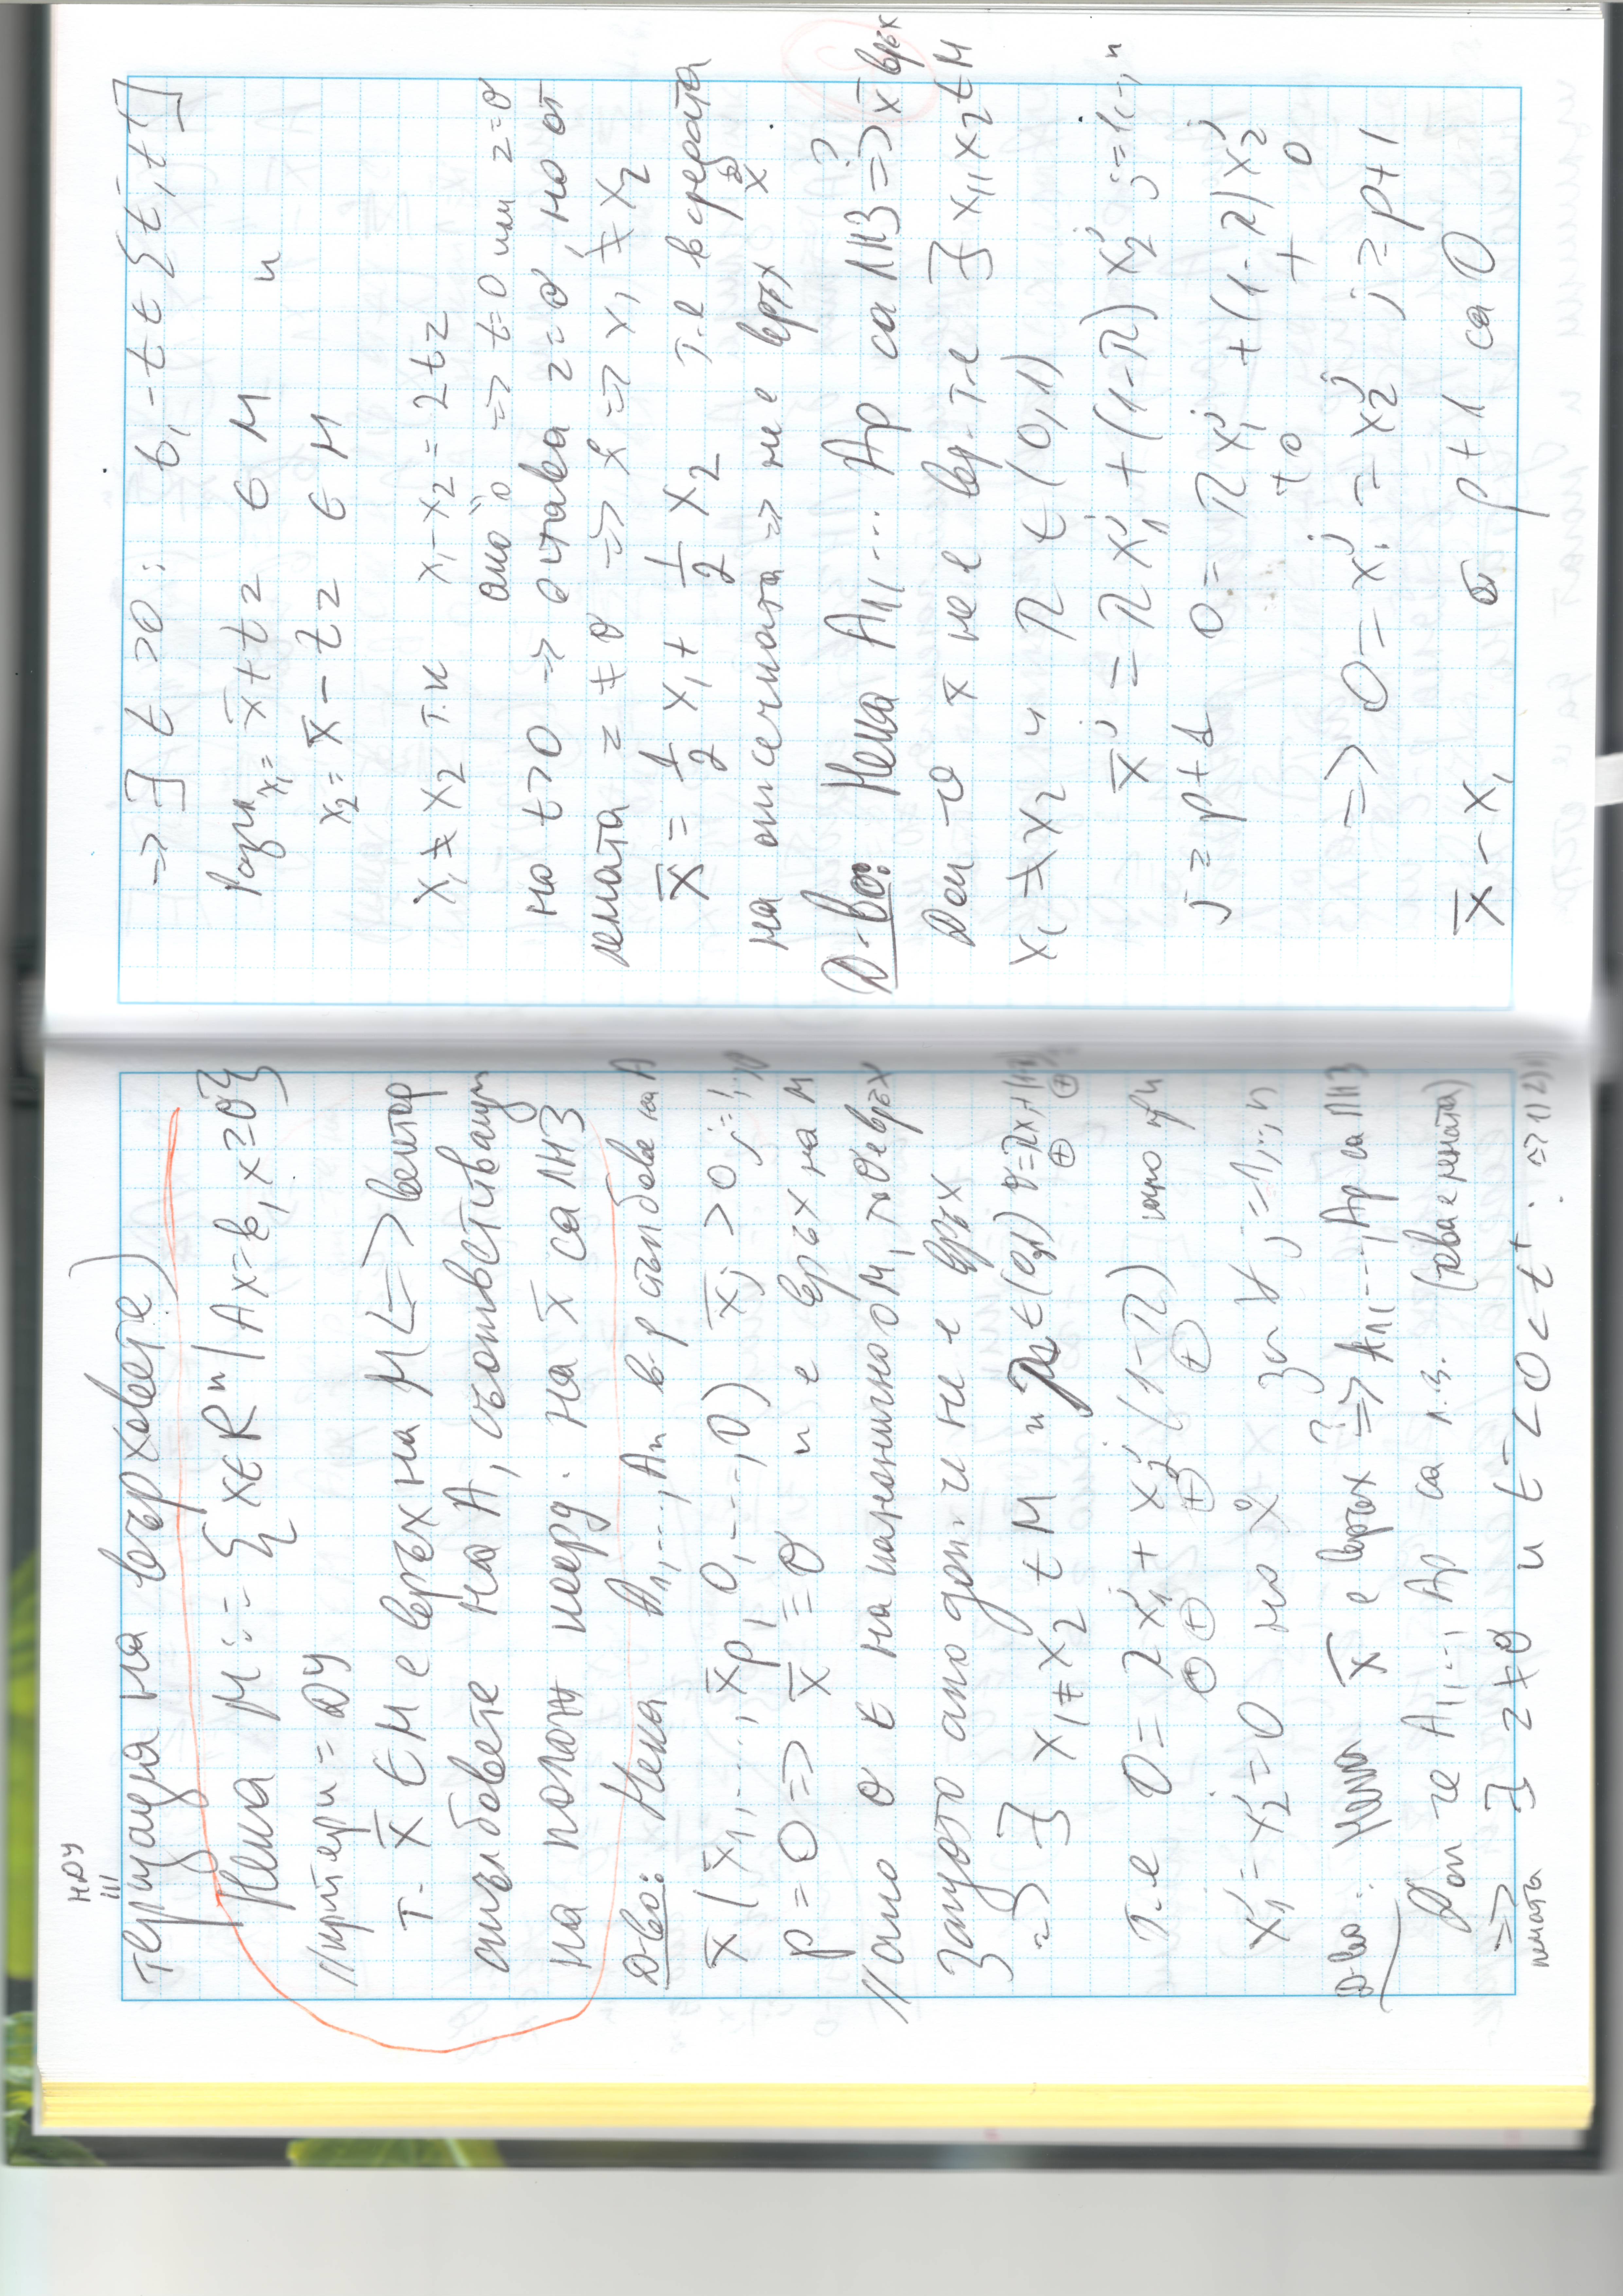 НДУ
III
теризация на върховете)
Нека M := {x ∈ Rⁿ | Ax = b, x ≥ 0}
//критери = ДУ
т. x̄ ∈ M е връх на M <=> вектор
стълбовете на A, съответстващи
на полож коорд. на x̄ са ЛНЗ
Д-во: Нека A₁, ..., Aₙ в-р стълбове на A
x̄ (x̄₁, ..., x̄p, 0, ..., 0) x̄j > 0 j = 1,..,p
p = 0 => x̄ = 0 и е връх на M
//ако 0 ∈ на множеството M, то 0 е връх
защото ако доп. че не е връх
=> ∃ x₁ ≠ x₂ ∈ M и λ ∈ (0,1) 0 = λx₁ + (1-λ)
т.е 0 = λ x₁ʲ + x₂ʲ (1-λ) при
⊕ ⊕ ⊕ ⊕
x₁ʲ = x₂ʲ = 0 за ∀ j = 1,..,n
Д-во: Нека x̄ е връх =>? A₁, ..., Ap са ЛНЗ
Доп че A₁, ..., Ap са л.з. (това е лемата)
=> ∃ z ≠ 0 и t⁻ < 0 < t⁺ :
лемата
=> ∃ t > 0 : -t, t ∈ [t⁻, t⁺]
Разгл x₁ = x̄ + tz ∈ M и
x₂ = x̄ - tz ∈ M
x₁ ≠ x₂ т.к x₁ - x₂ = 2tz
ако 0 => t = 0 или z = 0
но t > 0 => остава z = 0, но от
лемата z ≠ 0 => => x₁ ≠ x₂
x̄ = 1/2 x₁ + 1/2 x₂ т.е в средата
на отсечката => не е връх
Д-во: Нека A₁, ... Ap са ЛНЗ =>? x̄ връх
Доп-е x̄ не е връх т.е ∃ x₁, x₂ ∈ M
x₁ ≠ x₂ и λ ∈ (0,1)
x̄ʲ = λ x₁ʲ + (1-λ) x₂ʲ j = 1,..,n
j ≥ p+1 0 = λ x₁ʲ + (1-λ) x₂ʲ
+ 0 + 0
=> 0 = x₁ʲ = x₂ʲ j ≥ p+1
x̄ - x₁ от p+1 са 0